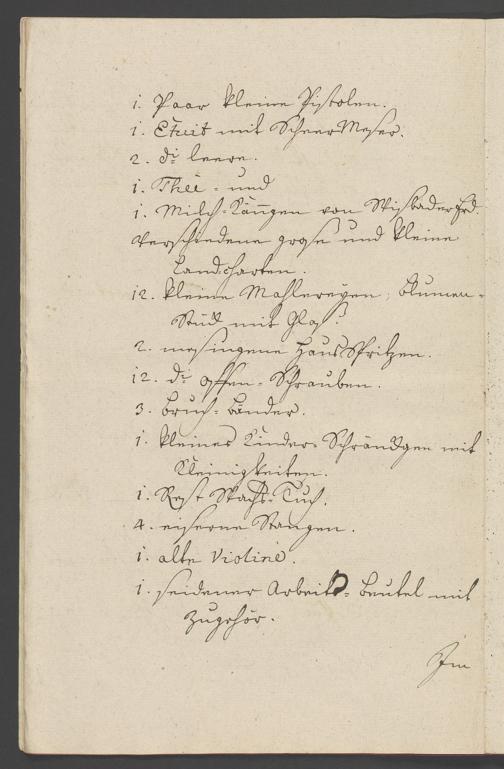 1. Paar kleine Pistolen.
1. Etuit mit Scheer Meser.
2. do leere.
1. Thee- und
1. Milch-Kängen von Wisbader Erd.
Verschiedene grose und kleine
Landcharten.
12. kleine Mahlereyen, blumen-
Stück mit Glas.
2. mesingene Haus Spritzen.
12. do offen-Schrauben.
3. bruch-bänder.
1. kleines Kinder-Schränckgen mit
Kleinigkeiten.
1. Rest Wachs-Tuch.
4. eiserne Stangen.
1. alte Violine.
1. seidener Arbeits-beutel mit
Zugehör.
Im